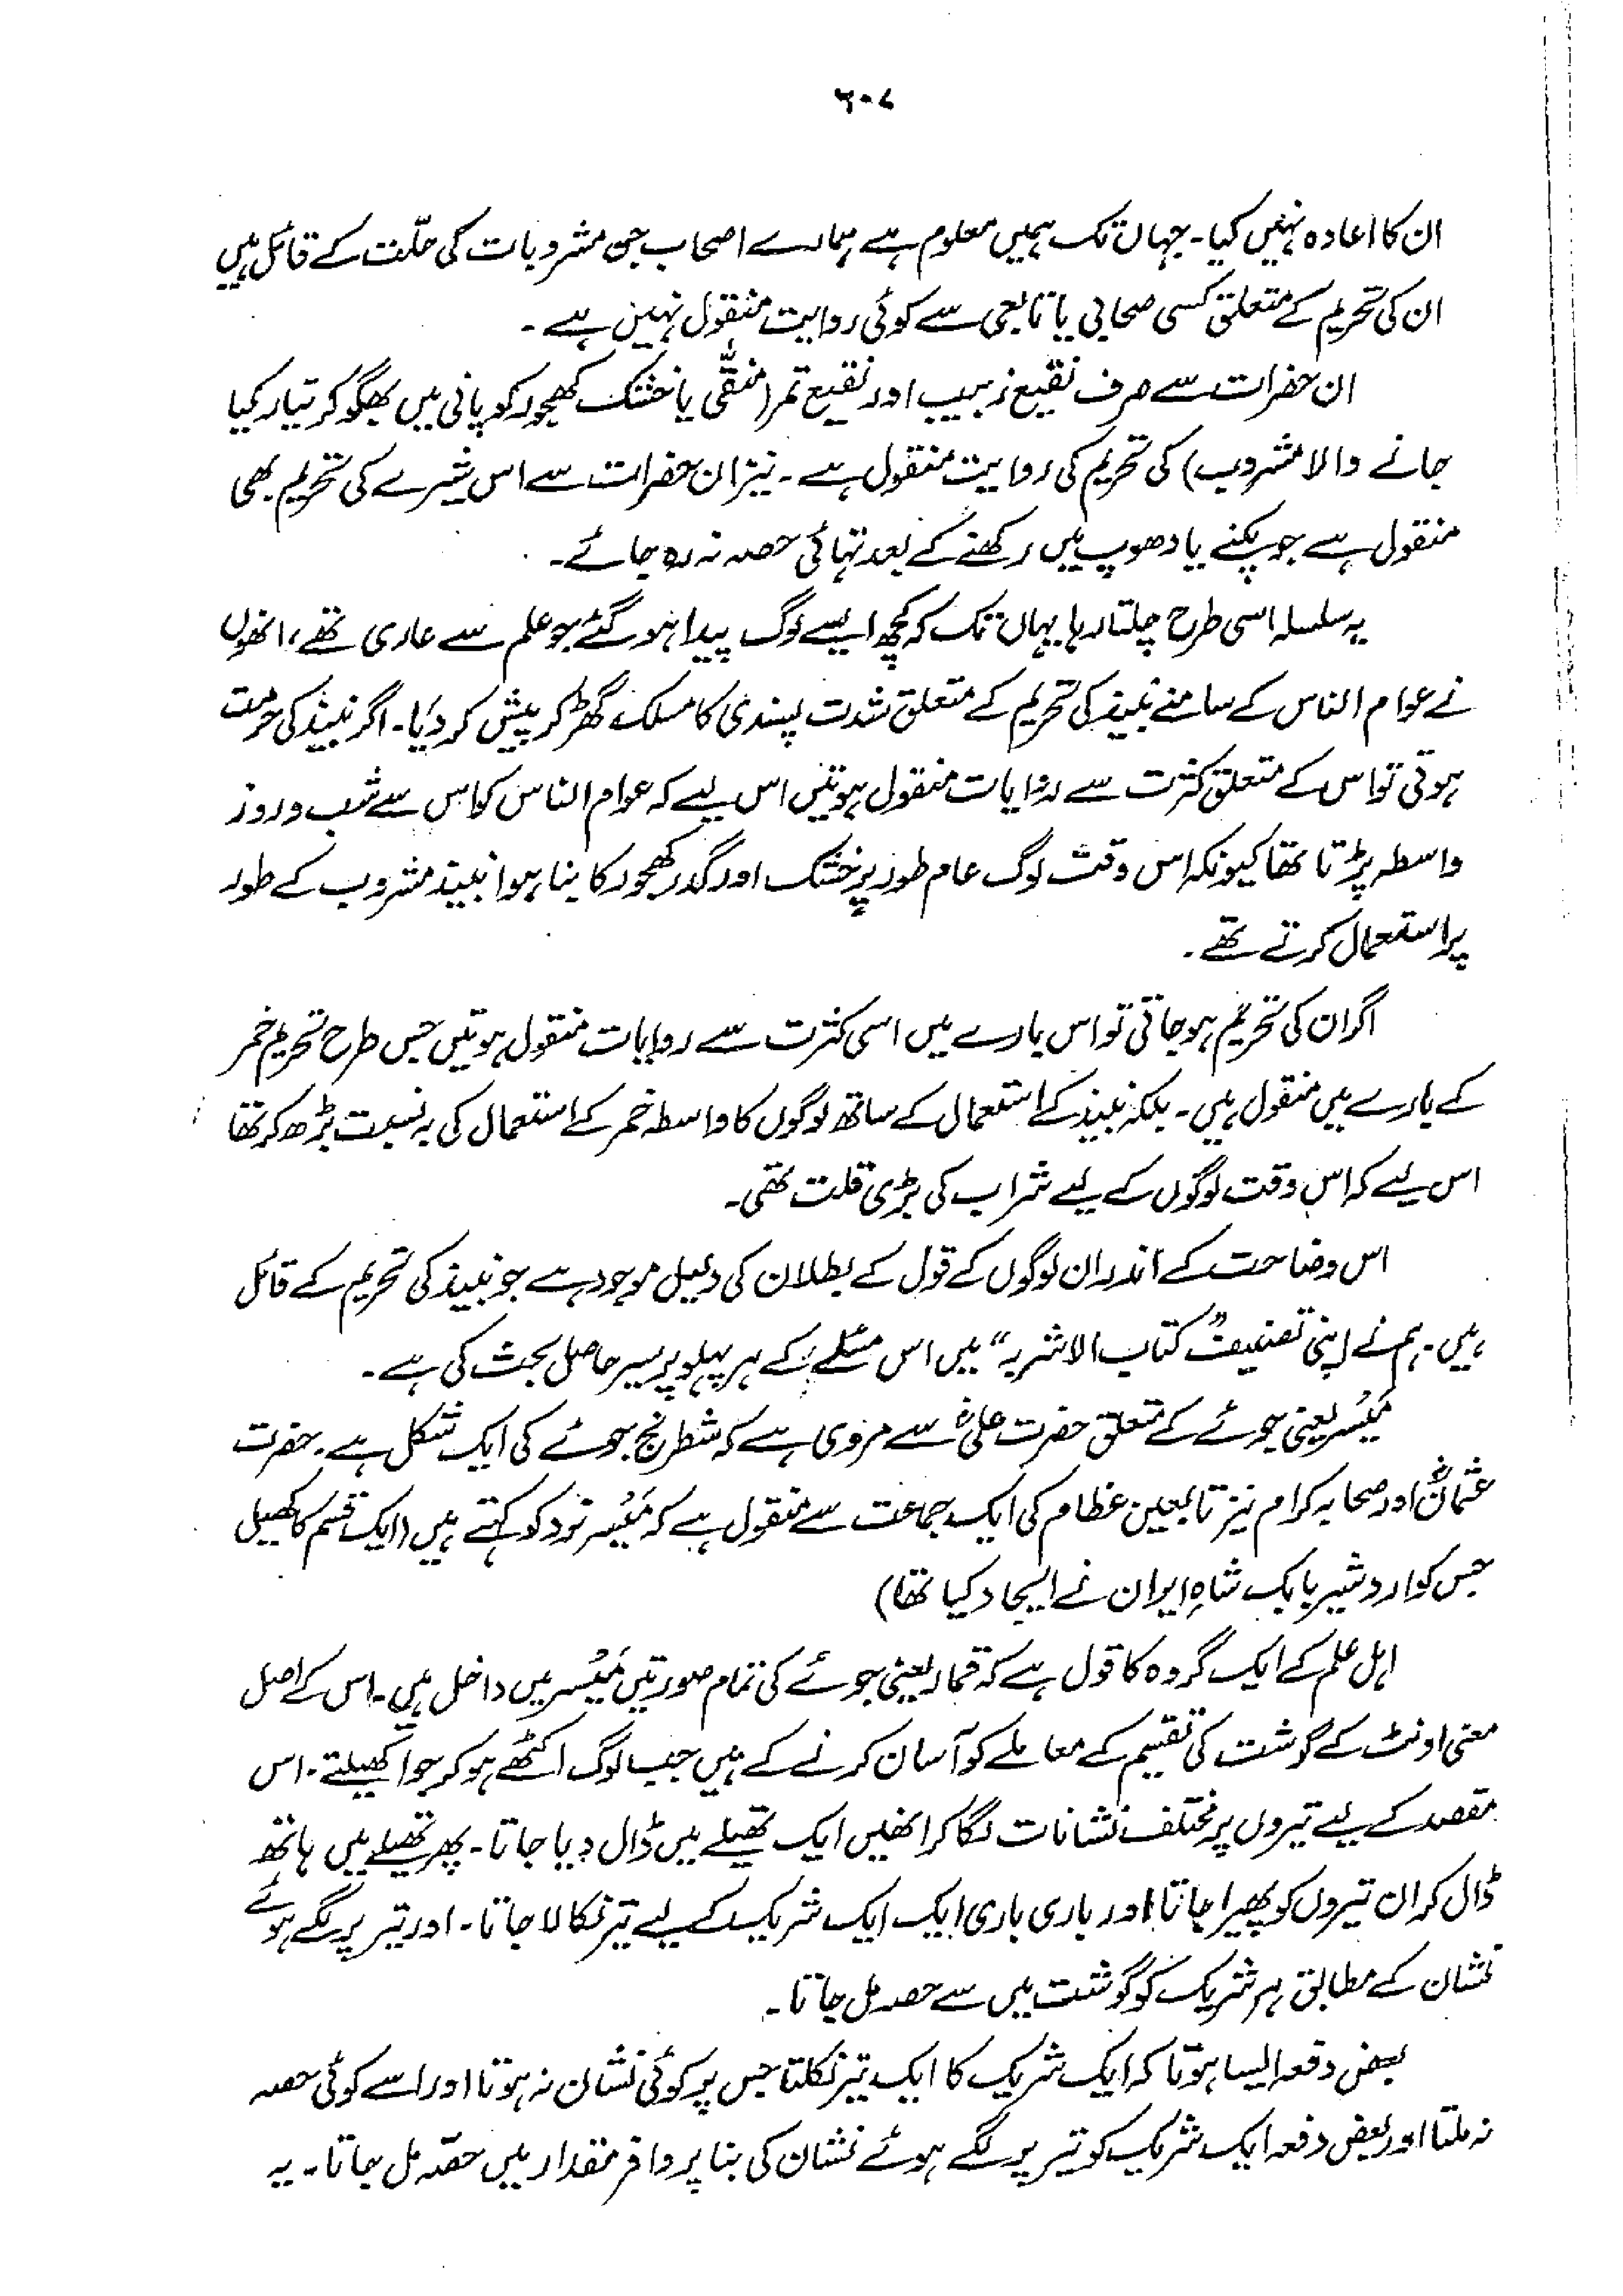 ۶۰۷
ان کا اعادہ نہیں کیا۔ جہاں تک ہمیں معلوم ہے ہمارے اصحاب جن مشروبات کی حلّت کے قائل ہیں
ان کی تحریم کے متعلق کسی صحابی یا تابعی سے کوئی روایت منقول نہیں ہے۔
ان حضرات سے صرف نقیع زبیب اور نقیع تمر (منقّٰی یا خشک کھجور کو پانی میں بھگو کر تیار کیا
جانے والا مشروب) کی تحریم کی روایت منقول ہے۔ نیز ان حضرات سے اس شیرے کی تحریم بھی
منقول ہے جو پکنے یا دھوپ میں رکھنے کے بعد تہائی حصہ نہ رہ جائے۔
یہ سلسلہ اسی طرح چلتا رہا یہاں تک کہ کچھ ایسے لوگ پیدا ہو گئے جو علم سے عاری تھے، انھوں
نے عوام الناس کے سامنے نبیذ کی تحریم کے متعلق شدت پسندی کا مسلک گھڑ کر پیش کر دیا۔ اگر نبیذ کی حرمت
ہوتی تو اس کے متعلق کثرت سے روایات منقول ہوتیں اس لیے کہ عوام الناس کو اس سے شب و روز
واسطہ پڑتا تھا کیونکہ اس وقت لوگ عام طور پر خشک اور گدر کھجور کا بنا ہوا نبیذ مشروب کے طور
پر استعمال کرتے تھے۔
اگر ان کی تحریم ہو جاتی تو اس بارے میں اسی کثرت سے روایات منقول ہوتیں جس طرح تحریم خمر
کے بارے میں منقول ہیں۔ بلکہ نبیذ کے استعمال کے ساتھ لوگوں کا واسطہ خمر کے استعمال کی بہ نسبت بڑھ کر تھا
اس لیے کہ اس وقت لوگوں کے لیے شراب کی بڑی قلت تھی۔
اس وضاحت کے اندر ان لوگوں کے قول کے بطلان کی دلیل موجود ہے جو نبیذ کی تحریم کے قائل
ہیں۔ ہم نے اپنی تصنیف "کتاب الاشربہ" میں اس مسئلے کے ہر پہلو پر سیر حاصل بحث کی ہے۔
مَیْسِر یعنی جوئے کے متعلق حضرت علیؓ سے مروی ہے کہ شطرنج جوئے کی ایک شکل ہے۔ حضرت
عثمانؓ اور صحابہ کرام نیز تابعین عظام کی ایک جماعت سے منقول ہے کہ مَیْسِر نرد کو کہتے ہیں (ایک قسم کا کھیل
جس کو اردشیر بابک شاہِ ایران نے ایجاد کیا تھا)
اہل علم کے ایک گروہ کا قول ہے کہ قمار یعنی جوئے کی تمام صورتیں مَیْسِر میں داخل ہیں۔ اس کے اصل
معنی اونٹ کے گوشت کی تقسیم کے معاملے کو آسان کرنے کے ہیں جب لوگ اکٹھے ہو کر جوا کھیلتے۔ اس
مقصد کے لیے تیروں پر مختلف نشانات لگا کر انھیں ایک تھیلے میں ڈال دیا جاتا۔ پھر تھیلے میں ہاتھ
ڈال کر ان تیروں کو پھیرا جاتا اور باری باری ایک ایک شریک کے لیے تیر نکالا جاتا۔ اور تیر پر لگے ہوئے
نشان کے مطابق ہر شریک کو گوشت میں سے حصہ مل جاتا۔
بعض دفعہ ایسا ہوتا کہ ایک شریک کا ایک تیر نکلتا جس پر کوئی نشان نہ ہوتا اور اسے کوئی حصہ
نہ ملتا اور بعض دفعہ ایک شریک کو تیر پر لگے ہوئے نشان کی بنا پر وافر مقدار میں حصّہ مل جاتا۔ یہ